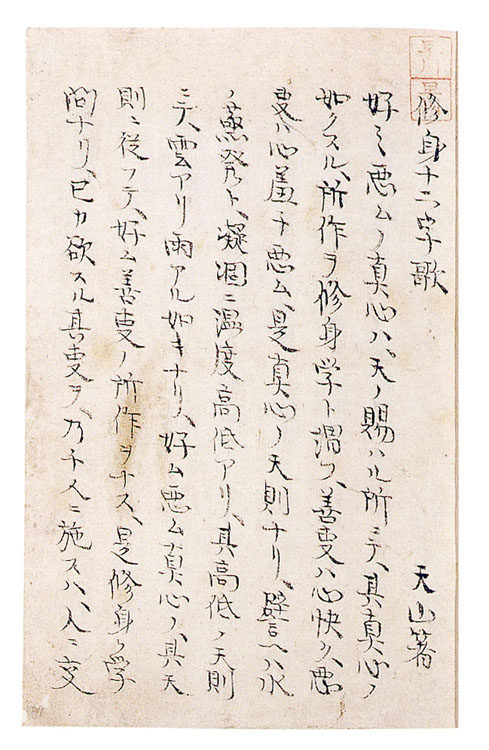 修身十二字歌 天山著
好ミ悪ムノ真心ハ、天ノ賜ハル所ニテ、其真心ノ
如クスル、所作ヲ修身学ト謂フ、善叓ハ心快ク、悪
叓ハ心羞チ悪ム、是真心ノ天則ナリ、譬ヘハ水
ノ蒸発ト、凝凅ニ温度高低アリ、其高低ノ天則
ニテ、雲アリ雨アル如キナリ、好ム悪ム真心ノ、其天
則ニ従フテ、好ム善叓ノ所作ヲナス、是修身ノ学
問ナリ、已カ欲スル其叓ヲ、乃チ人ニ施スハ、人ニ交